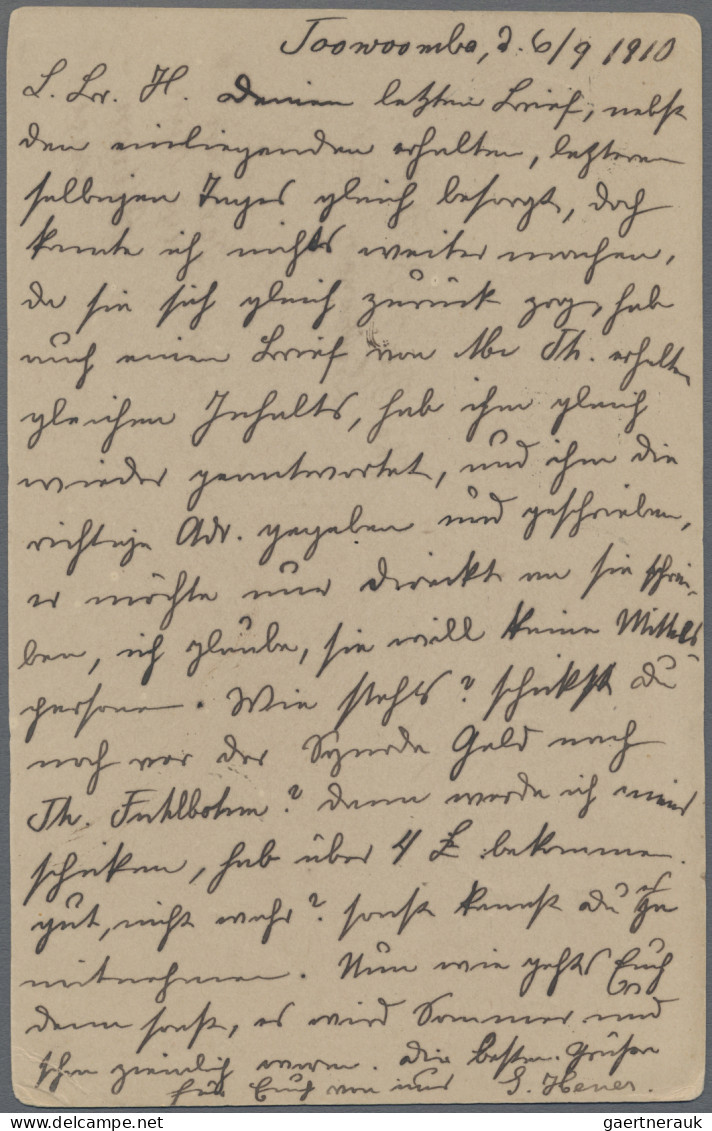 Toowoomba, d. 6/9 1910
L. Br. H. Deinen letzten Brief, nebst
den einliegenden erhalten, letzteren
selbigen Tages gleich besorgt, doch
konnte ich nichts weiter machen,
da sie sich gleich zurück zog, hab
auch einen Brief von Th. erhalten
gleichen Inhalts, hab ihm gleich
wieder geantwortet, und ihm die
richtige Adr. gegeben und geschrieben,
er möchte nur direckt an sie schrei-
ben, ich glaube, sie will keine Mittels
person. Wie stehts? schickst du
noch vor der Synode Geld nach
Th. ? dann werde ich meins
schicken, hab über 4 £ bekommen.
gut, nicht wahr? sonst kannst du es ja
mitnehmen. Nun wie gehts Euch
denn sonst, es wird Sommer und
schon ziemlich warm. Die besten Grüße
für Euch von uns G. Heuer.
gaertnerauk